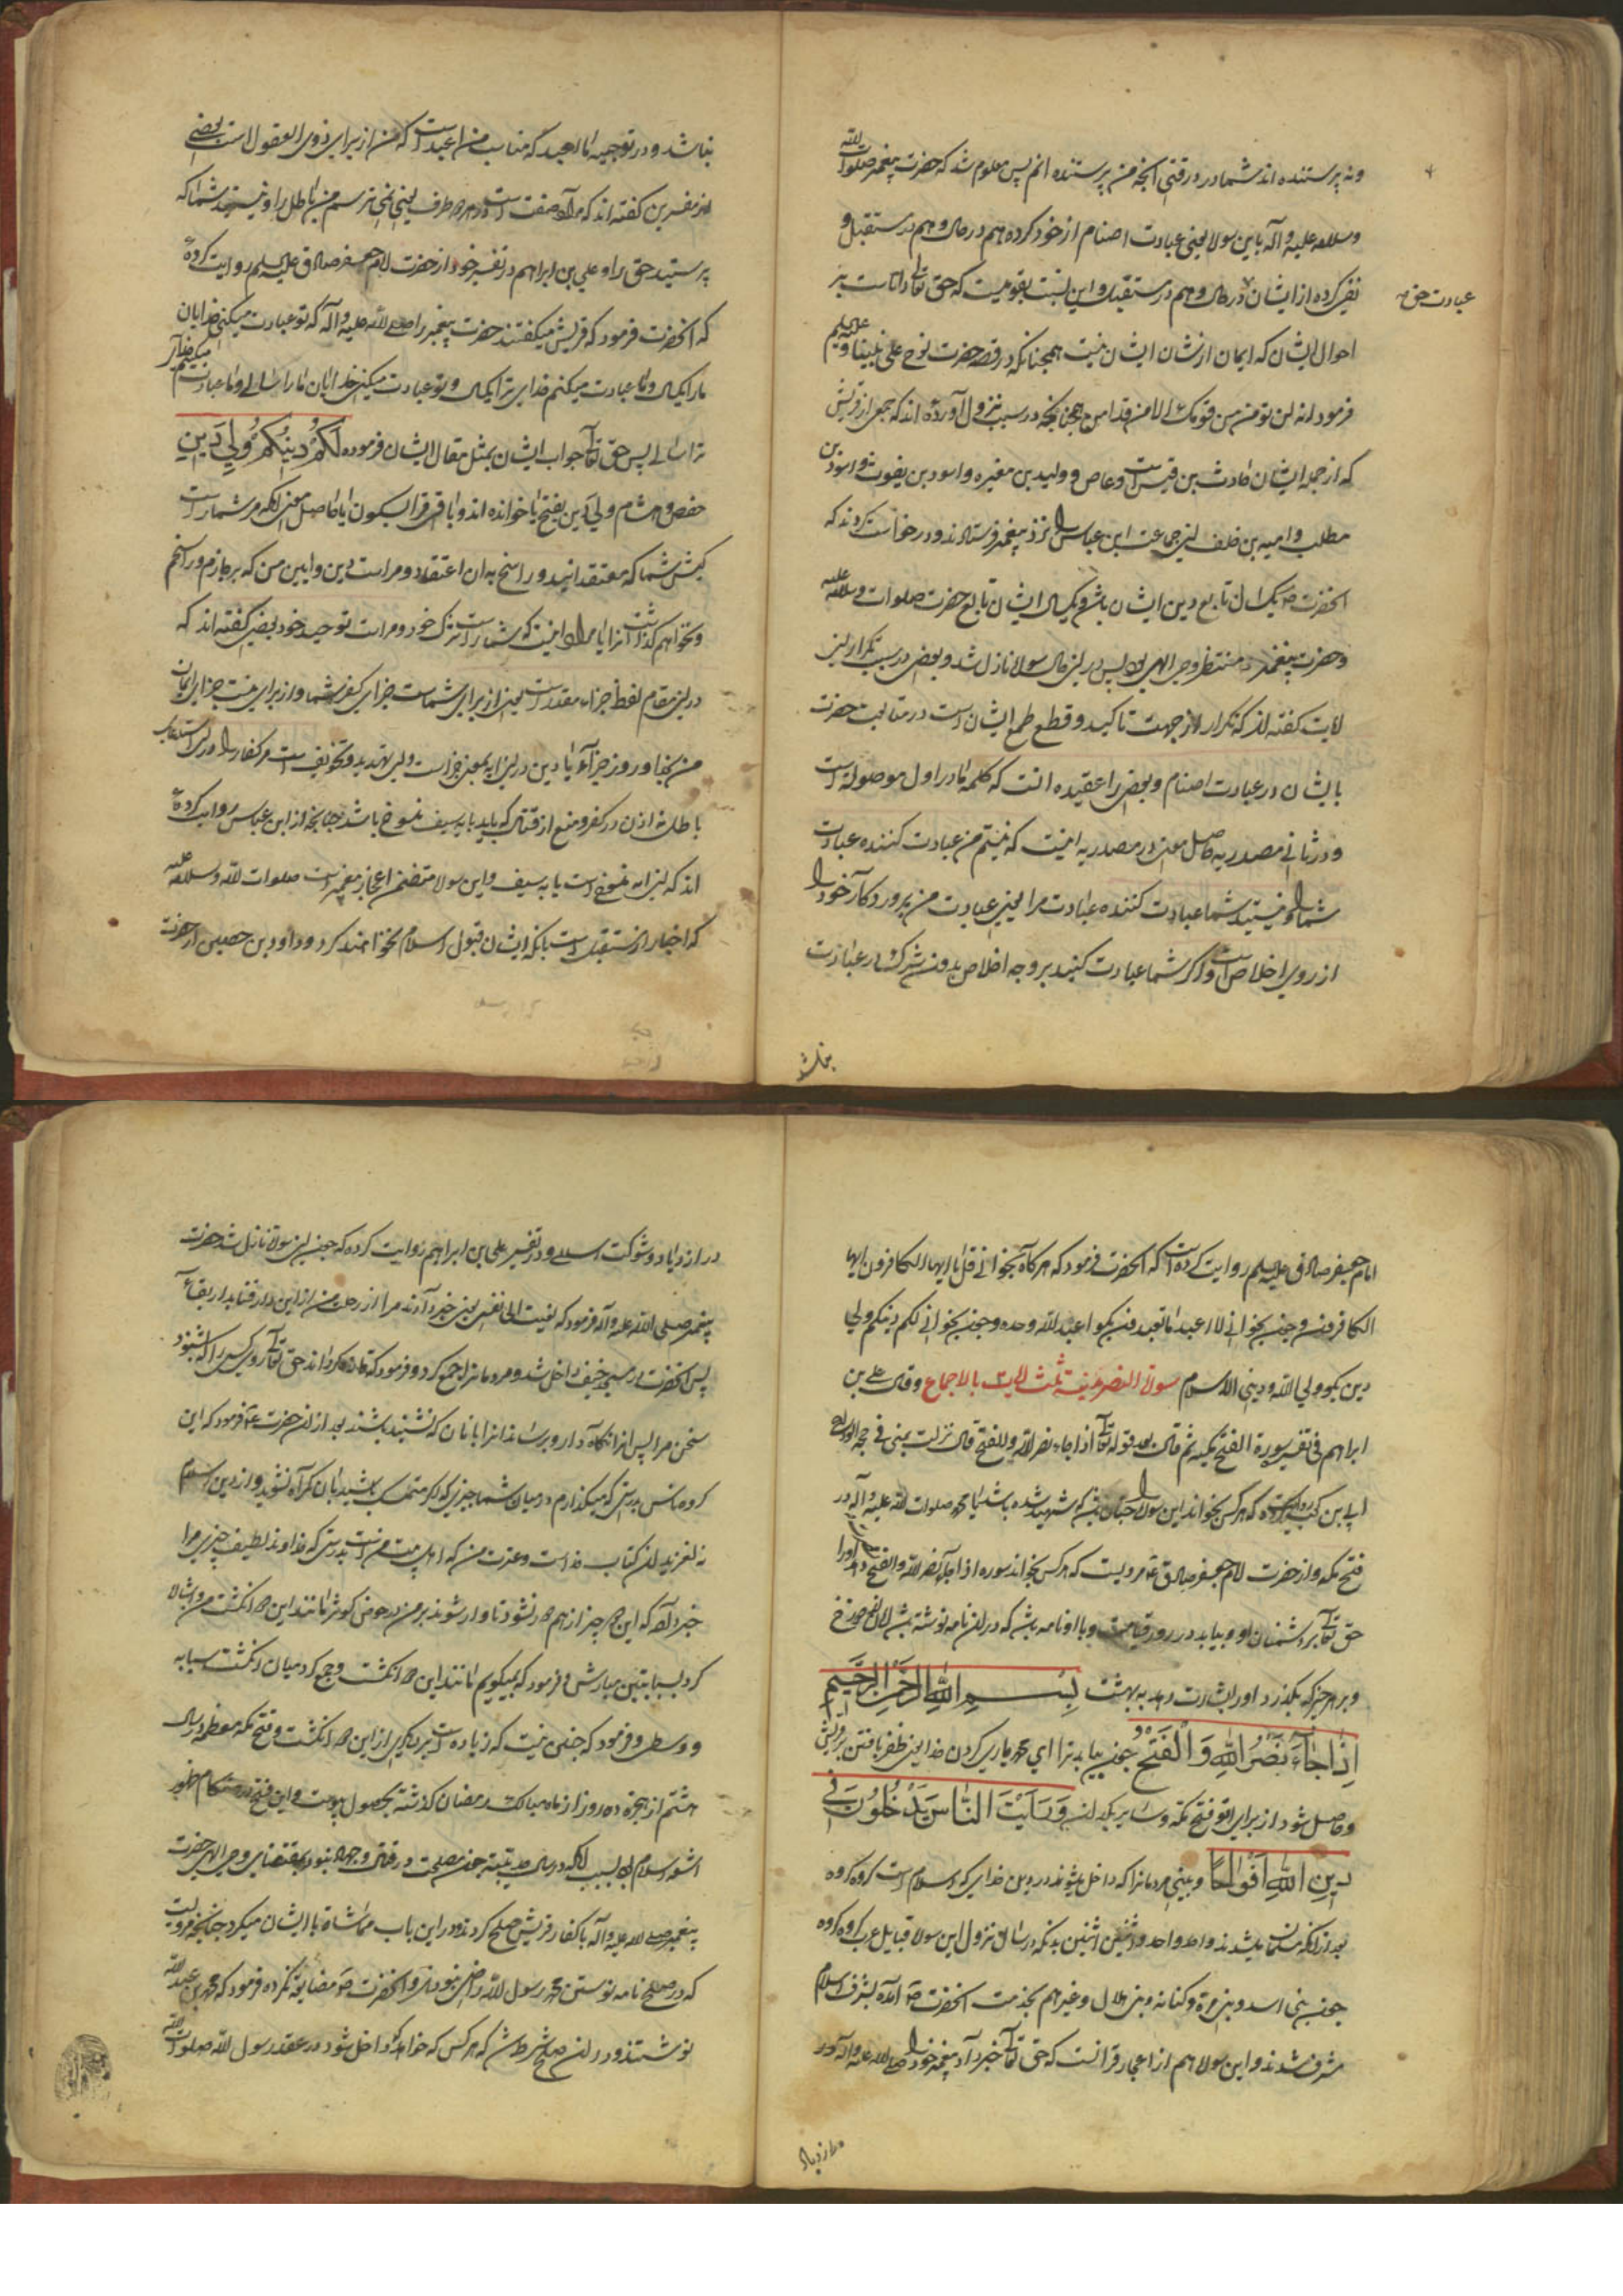 ونه پرستنده اند شما در وقتی آنچه من پرستنده انم پس معلوم شد که حضرت پیغمبر صلوات الله
وسلامه علیه و آله باین سوره یعنی عبادت اصنام از خود کرده هم در حال و هم در مستقبل و
نفی کرده از ایشان در حال و هم در مستقبل و این نسبت بقومیست که حق تعالی دانا است بر
عبادت حق
احوال ایشان که ایمان از شان ایشان نیست همچنانکه در قصه حضرت نوح علی نبینا و علیه السلم
فرموده انه لن یومن من قومک الا من قد امن همچنانچه در سبب نزول آورده اند که جمعی از قریش
که از جمله ایشان حارث بن قیس است و عاص و ولید بن مغیره و اسود بن یغوث و اسود بن
مطلب و امیه بن خلف این جماعت ابن عباس را نزد پیغمبر فرستادند و درخواست کردند که
آنحضرت یکسال تابع دین ایشان باشد و یکسال ایشان تابع حضرت صلوات وسلامه علیه
وحضرت پیغمبر منتظر وحی الهی بود پس در این حال سوره نازل شد و بعضی در سبب تکرار این
آیات گفته اند که تکرار از جهت تاکید و قطع طمع ایشان است در متابعت حضرت
بایشان در عبادت اصنام و بعضی را عقیده آنست که کلمه ما در اول موصوله است
و در ثانی مصدریه حاصل معنی در مصدریه اینست که نیستم من عبادت کننده عبادت
شما را و نیستید شما عبادت کننده عبادت مرا یعنی عبادت من پروردکار خود را
از روی اخلاص است و اکر شما عبادت کنید بر وجه اخلاص بدون شرک در عبادت
نباشد
نباشد و در توجیه ما اعبد که مناسب من اعبد است که من از برای ذوی العقول است بعضی
از مفسرین گفته اند که مراد صفت است در هر دو طرف یعنی نمی پرستم من باطل را و نیستید شما که
پرستید حق را و علی بن ابراهیم در تفسیر خود از حضرت امام جعفر صادق علیه السلم روایت کرده
که آنحضرت فرمود که قریش میگفتند حضرت پیغمبر را صلی الله علیه و آله که تو عبادت میکنی خدایان
ما را یکسال و ما عبادت میکنیم خدای ترا یکسال و تو عبادت میکنی خدایان ما را سالی و ما عبادت میکنیم خدای
ترا سالی پس حق تعالی جواب ایشان بمثل مقال ایشان فرموده لَكُمْ دِينُكُمْ وَلِيَ دِينِ
حفص و هشام ولی دین بفتح یا خوانده اند و باقی قرا بسکون یا حاصل معنی آنکه مر شما راست
کیش شما که معتقد آنید و راسخ به آن اعتقاد و مراست دین و آیین من که بر جازم و راسخم
و نخواهم گذاشت آنرا یا مراد اینست که شما راست شرک خود و مراست توحید خود بعضی گفته اند که
در این مقام لفظ جزاء مقدر است یعنی از برای شماست جزای کفر شما و از برای منست جزای ایمان
من بنا و روز جزا یا دین در این آیه بمعنی جزا است و این تهدید و تخویف است مر کفار را
باطله اذن در کفر و منع از قتال که باید بآیه سیف منسوخ باشد چنانچه از ابن عباس روایت کرده
اند که این آیه منسوخ است یا به سیف و این سوره متضمن اعجاز پیغمبر است صلوات الله وسلامه علیه
که اخبار از مستقبل است بانکه ایشان قبول اسلام نخواهند کرد و داود بن حصین از حضرت
امام جعفر صادق علیه السلم روایت کرده است که آنحضرت فرمود که هر کاه بخوانی قل یا ایها الکافرون ایها
الکافرون و چون بخوانی لا اعبد ما تعبدون بکو اعبد الله وحده و چون بخوانی لکم دینکم ولی
دین بکو ولی الله و دینی الاسلام سورة النصر مدنیة ثلث آیات بالاجماع وقال علی بن
ابراهیم فی تفسیر سورة الفتح بمکیه ثم قال بعد قوله تعالی اذا جاء نصر الله والفتح قال نزلت بمنی فی حجة الوداع
ابی بن کعب روایت کرده که هر کس بخواند این سوره را چنان باشد که شهید شده باشد با محمد صلوات الله علیه و آله در
فتح مکه و از حضرت امام جعفر صادق ع مرویست که هر کس بخواند سوره اذا جاء نصر الله والفتح اورا
حق تعالی بر دشمنان او و بیاید در روز قیامت و با او نامه باشد که در آن نامه نوشته باشد
و بر هر چیز که بگذرد او را بشارت دهد به بهشت بِسْمِ اللَّهِ الرَّحْمَنِ الرَّحِيمِ
إِذَا جَاءَ نَصْرُ اللَّهِ وَالْفَتْحُ چون بیاید ترا ای محمد یاری کردن خدا یعنی ظفر یافتن بر قریش
و حاصل شود از برای تو فتح مکه و سایر بلدان وَرَأَيْتَ النَّاسَ يَدْخُلُونَ فِي
دِينِ اللَّهِ أَفْوَاجًا و بینی مردمانرا که داخل میشوند در دین خدای که اسلام است کروه کروه
بعد از آنکه مسلمان میشدند واحد واحد و اثنین اثنین بدانکه در سال نزول این سوره قبایل عرب کروه کروه
چون بنی اسد و بنی مره و کنانه و بنی هلال و غیر هم بخدمت آنحضرت آمده بشرف اسلام
مشرف شدند و این سوره هم از اعجاز قرآنست که حق تعالی خبر داد پیغمبر خود را صلی الله علیه و آله در
در ازدیاد
در ازدیاد و شوکت اسلام و در تفسیر علی بن ابراهیم روایت کرده که چون این سوره نازل شد حضرت
پیغمبر صلی الله علیه و آله فرمود که نعیت الی نفسی یعنی خبر دادند مرا از رحلت من از این دار فنا بدار بقا
پس آنحضرت در مسجد خیف داخل شد و مردمانرا جمع کرد و فرمود که شاد کرداند حق تعالی روی کسی را که بشنود
سخن مرا پس آنرا نگاه دارد و برساند آنرا بانان که نشنیده باشند بعد از آن حضرت فرمود که ای
کروه ناس بدرستی که میگذارم در میان شما چیزی که اکر متمسک باشید بآن گمراه نشوید و از دین اسلام
نه لغزید آن کتاب خداست و عترت من که اهل بیت منست بدرستی که خداوند لطیف خبیر مرا
خبر داد که این دو چیز از هم جدا نشود تا وارد شوند بر من در حوض کوثر مانند این دو انگشت من و اشاره
کرد بسبابتین مبارکش و فرمود که نمیگویم مانند این دو انگشت و جمع کرد میان انگشت سبابه
و وسطی و فرمود که چنین نیست که زیاده است بر دیگری از این دو انگشت و فتح مکه معظمه در سال
هشتم از هجرة ده روز از ماه مبارک رمضان گذشته بحصول پیوست و این فتح در هنگام ظهور
اشعه اسلام بود بسبب آنکه در سال حدیبیه چون مصلحت در قتال و جهاد نبود بمقتضای وحی الهی حضرت
پیغمبر صلی الله علیه و آله با کفار قریش صلح کردند و در این باب مماشاة با ایشان میکرد چنانچه مرویست
که در صلح نامه نوشتن محمد رسول الله راضی نبودند و آنحضرت مضایقه نکرده فرمود که محمد بن عبد الله
نوشتند و در آن صلح شرط شد که هر کس که خواهد داخل شود در عقد رسول الله صلوات الله